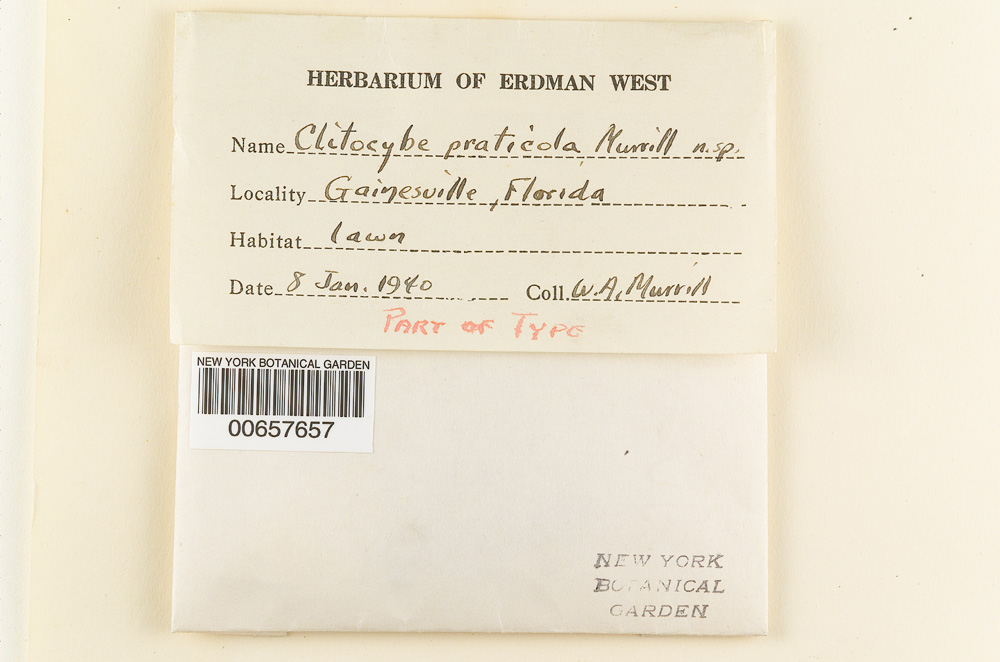 HERBARIUM OF ERDMAN WEST
Name Clitocybe praticola Murrill n.sp.
Locality Gainesville, Florida
Habitat lawn
Date 8 Jan. 1940 Coll. W.A. Murrill
PART OF TYPE
NEW YORK BOTANICAL GARDEN
00657657
NEW YORK
BOTANICAL
GARDEN